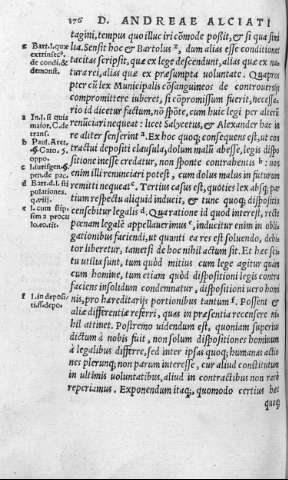 176 D. ANDREAE ALCIATI
tagini, tempus quo illuc iri cõmode poßit, & si qua simi
lia. Sensit hoc & Bartolus z, dum alias esse conditiones
tacitas scripsit, quæ ex lege descendunt, alias quæ ex na
tura rei, alias quæ ex præsumpta voluntate. Quapro
pter cũ lex Municipalis cõsanguineos de controversijs
compromittere iuberet, si cõpromissum fuerit, necessa
rio id dicetur factum, nõ spõte, cum huic legi per alterũ
renuciari nequeat: licet Salycetus, & Alexander hac in
re aliter senserint a. Ex hoc quoq; consequens est, ut con
tractui depositi clausula, dolum malũ abesse, legis dispo
sitione inesse credatur, nõ sponte contrahentis b: nos
enim illi renunciari potest, cum dolus malus in futurum
remitti nequeat c. Tertius casus est, quoties lex absq; par
tium respectu aliquid inducit, & tunc quoq; dispositio
censebitur legalis d. Qua ratione id quod interest, recte
pœnam legalẽ appellaverimus e, inducitur enim in obli
gationibus faciendi, ut quanti ea res est soluendo, debi
tor liberetur, tametsi de hoc nihil actum sit. Et hæc sci
tu utilia sunt, tum quòd mitius cum lege agitur quàm
cum homine, tum etiam quòd dispositioni legis contra
faciens insolidum condemnatur, dispositioni uero homi
nis, pro hæreditarijs portionibus tantum f. Possent &
aliæ differentiæ referri, quas in præsentia recensere ni
hil attinet. Postremo uidendum est, quoniam superius
dictum à nobis fuit, non solum dispositiones hominum
à legalibus differre, sed inter ipsas quoq; humanas actio
nes plerunq; non parum interesse, cur aliud constitutum
in ultimis uoluntatibus, aliud in contractibus non rarò
reperiamus. Exponendum itaq;, quomodo certius hæc
quæq;
z Bart. l. quæ
extrinsec⁹
de condi. &
demonst.
a In. l. si quis
maior. C. de
trans.
b Paul. Aret.
& Cato. §.
oppo.
c l. iurisgen. §
pen. de pac.
d Bart. d. l. sti
pulationes.
e l. cum stip.
sim a procu
lo. eo. tit.
f l. in deposi
ti. ff. depo.